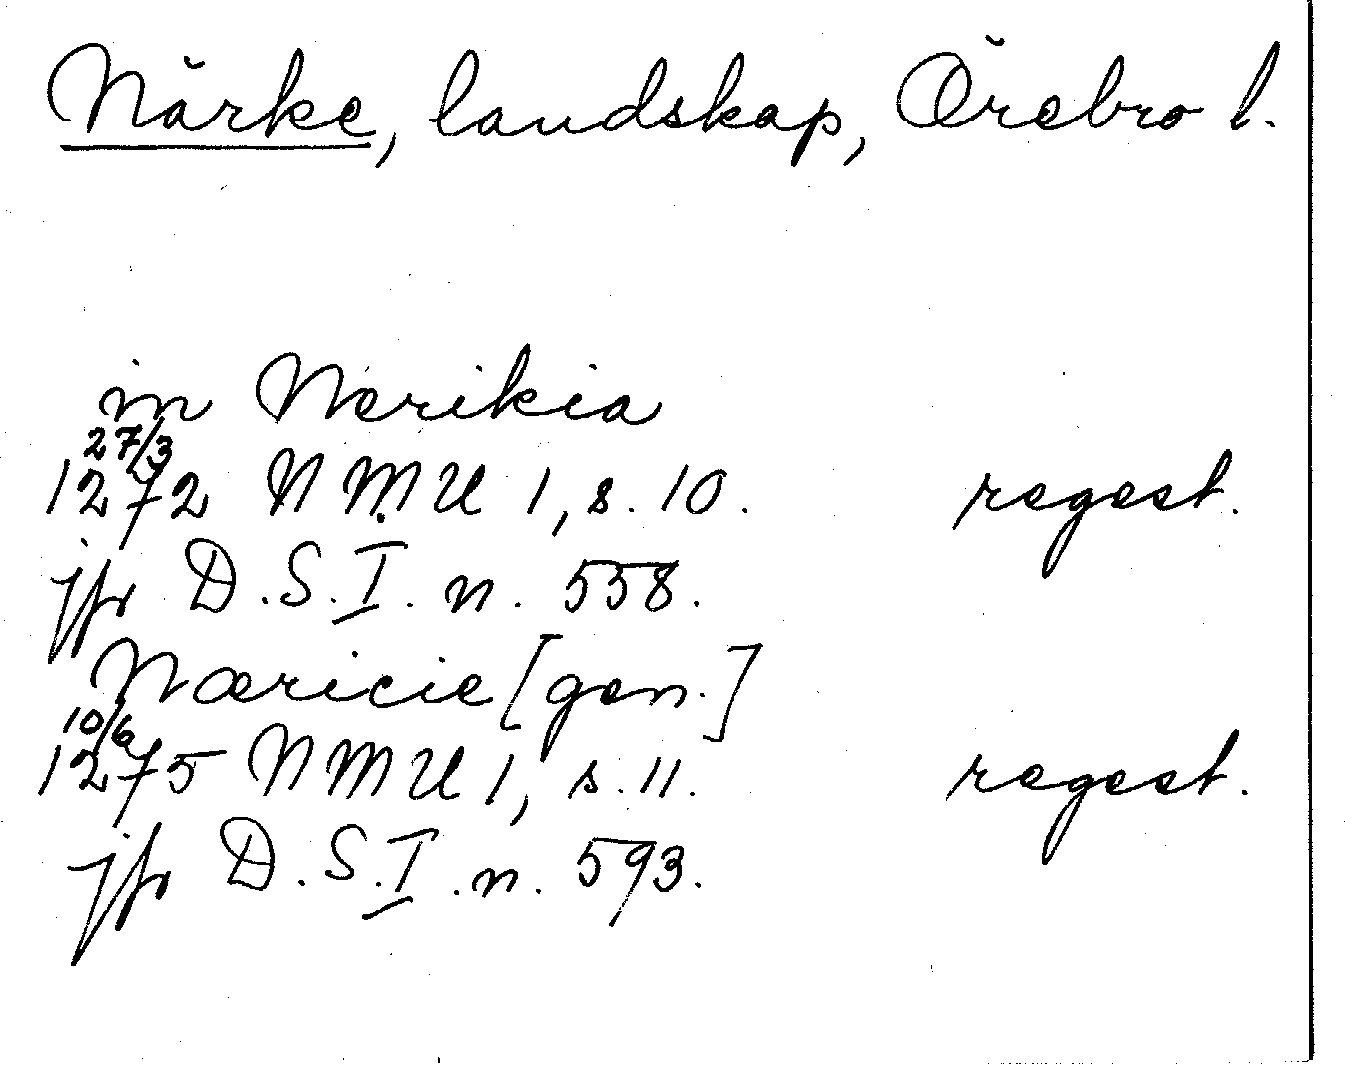 Närke, landskap, Örebro l.
in Nerikia
27/3
1272 NMU 1, s. 10. regest.
jfr D.S.I. n. 558.
Næricie [gen.]
10/6
1275 NMU 1, s. 11. regest.
jfr D.S.I. n. 593.